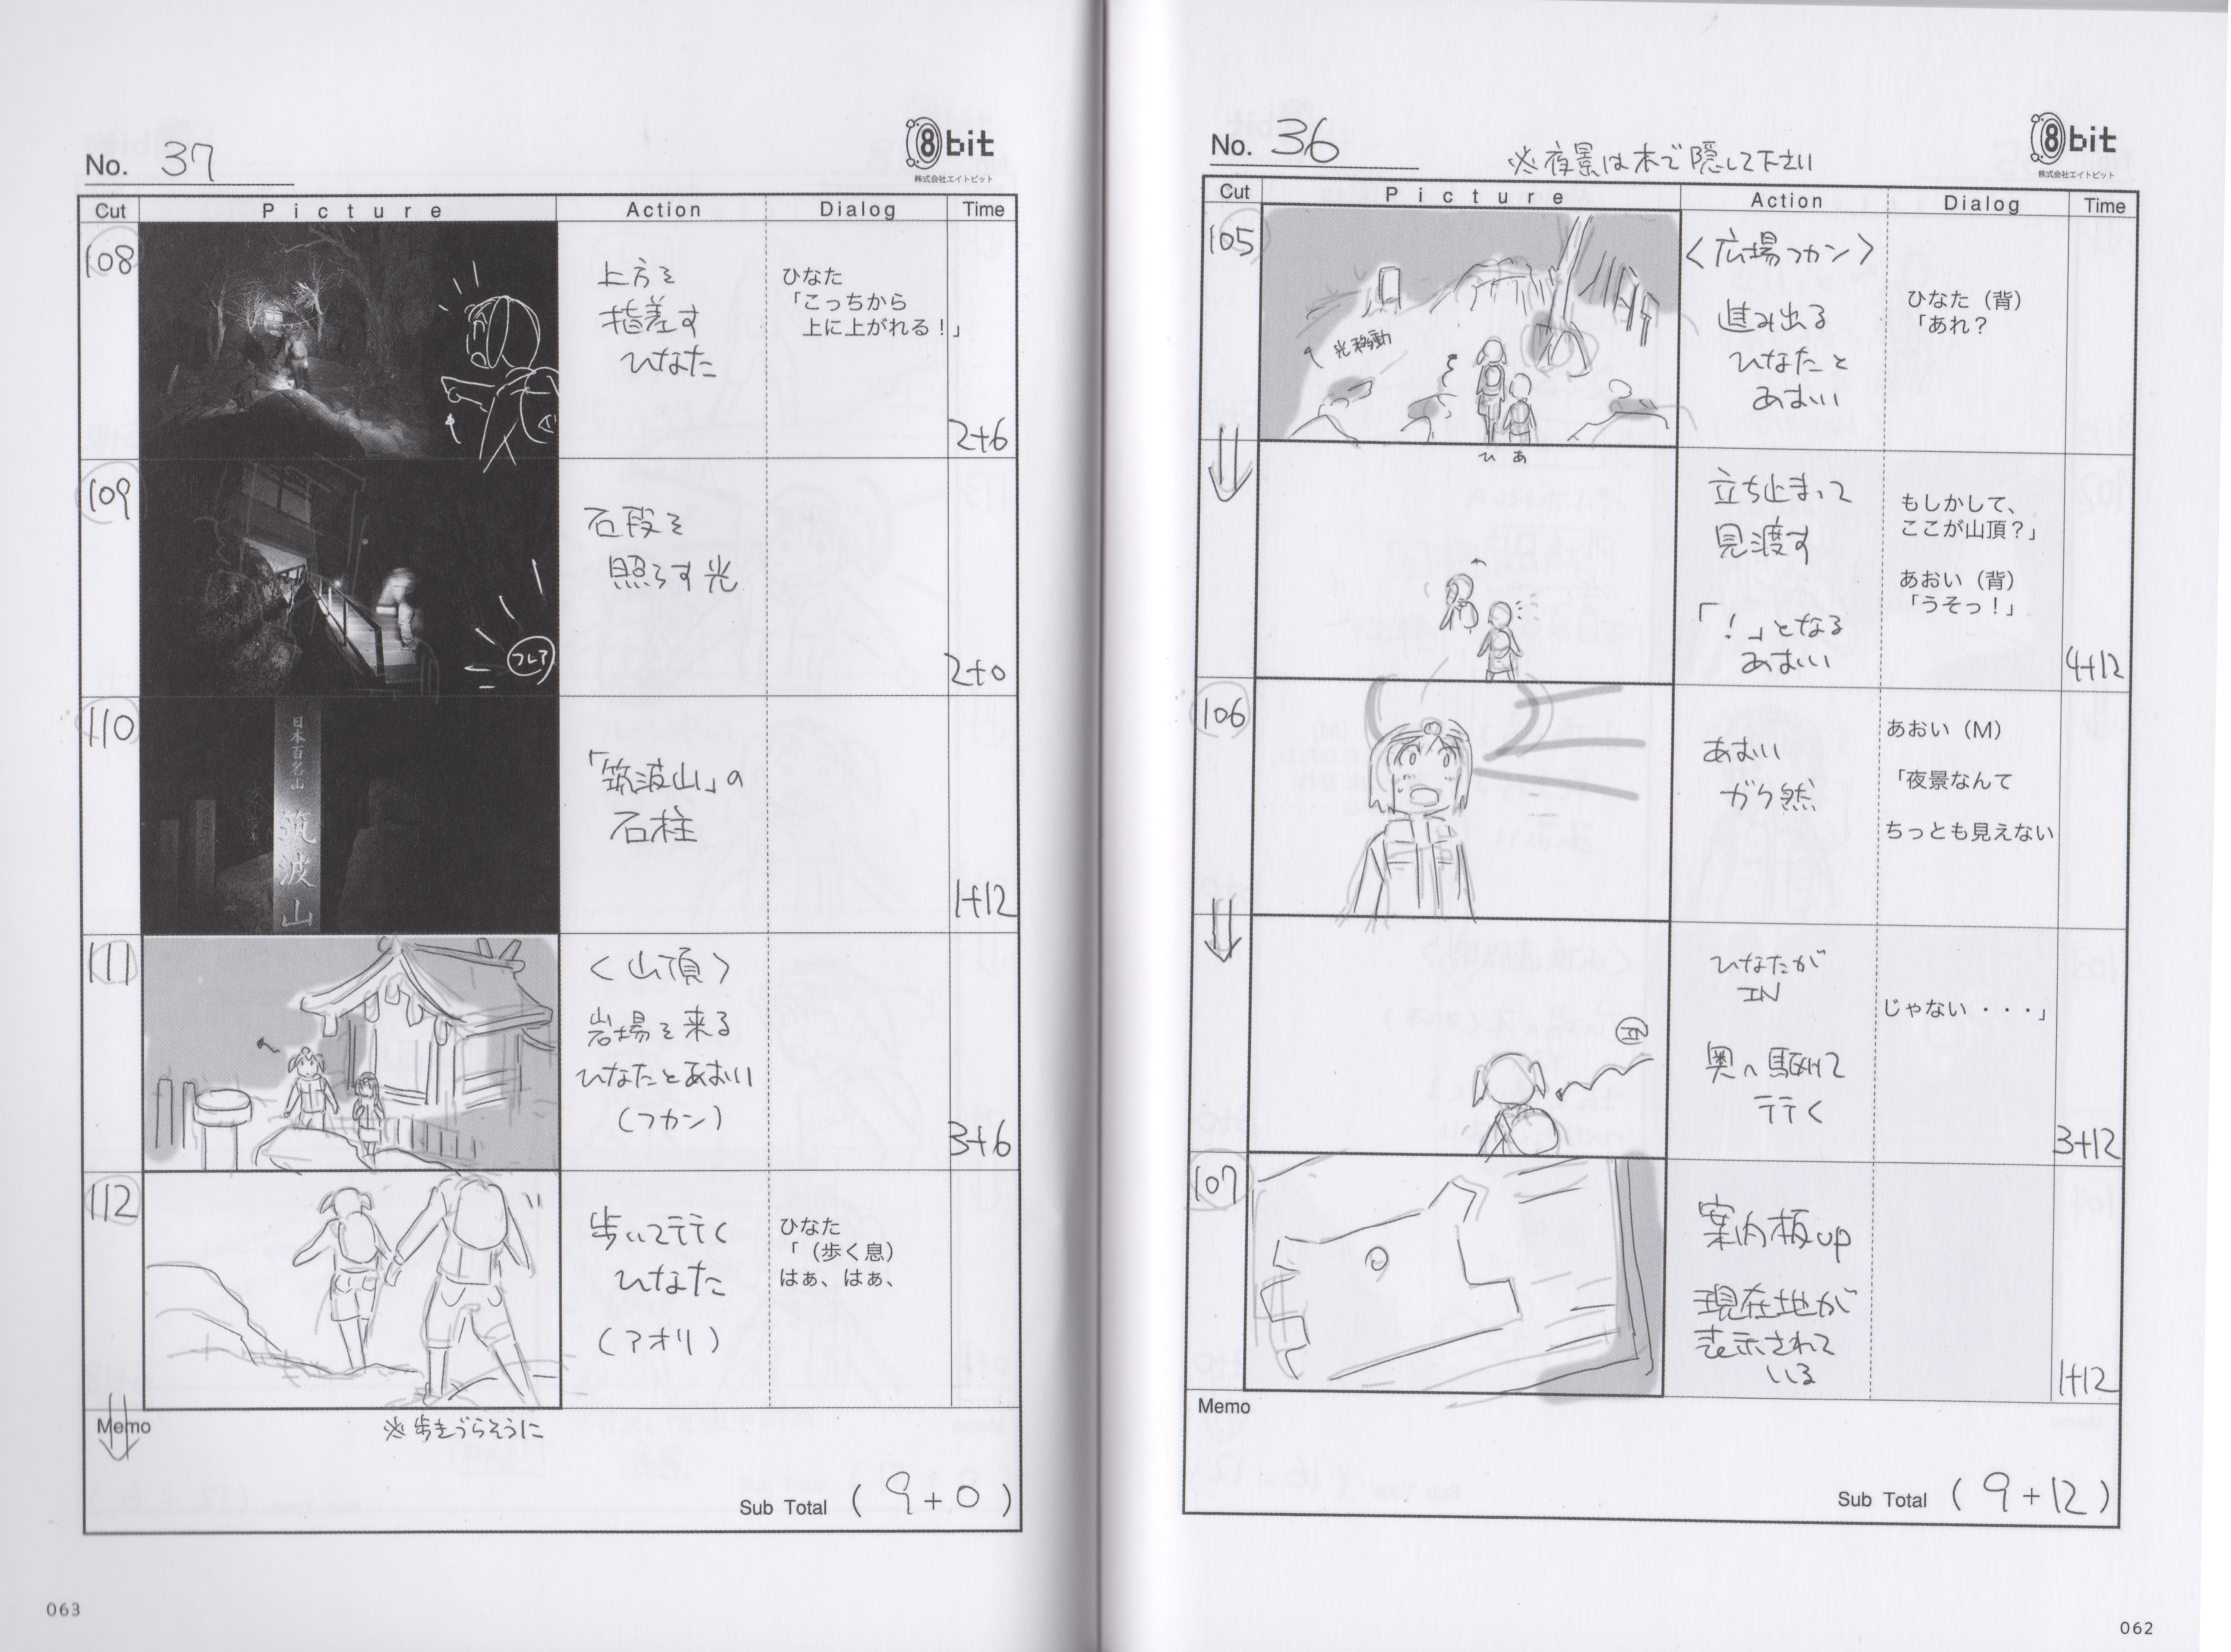 No. 36
※夜景は木で隠して下さい
8bit
株式会社エイトビット
Cut
Picture
Action
Dialog
Time
105
光移動
ひ あ
〈広場フカン〉
進み出る
ひなたと
あおい
ひなた（背）
「あれ？
立ち止まって
見渡す
「！」となる
あおい
もしかして、
ここが山頂？」
あおい（背）
「うそっ！」
4+12
106
あおい
ガク然
あおい（M）
「夜景なんて
ちっとも見えない
IN
ひなたが
IN
奥へ駆けて
行く
じゃない・・・」
3+12
107
案内板up
現在地が
表示されて
いる
1+12
Memo
Sub Total (9+12)
062
No. 37
8bit
株式会社エイトビット
Cut
Picture
Action
Dialog
Time
108
上方を
指差す
ひなた
ひなた
「こっちから
上に上がれる！」
2+6
109
フレア
石段を
照らす光
2+0
110
日本百名山
筑波山
「筑波山」の
石柱
1+12
111
〈山頂〉
岩場を来る
ひなたとあおい
（フカン）
3+6
112
歩いて行く
ひなた
（アオリ）
ひなた
「（歩く息）
はぁ、はぁ、
Memo
※歩きづらそうに
Sub Total (9+0)
063